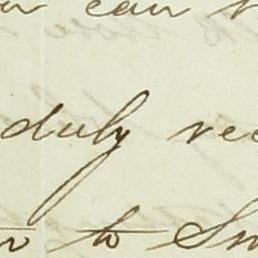 can
duly rec
to Sm